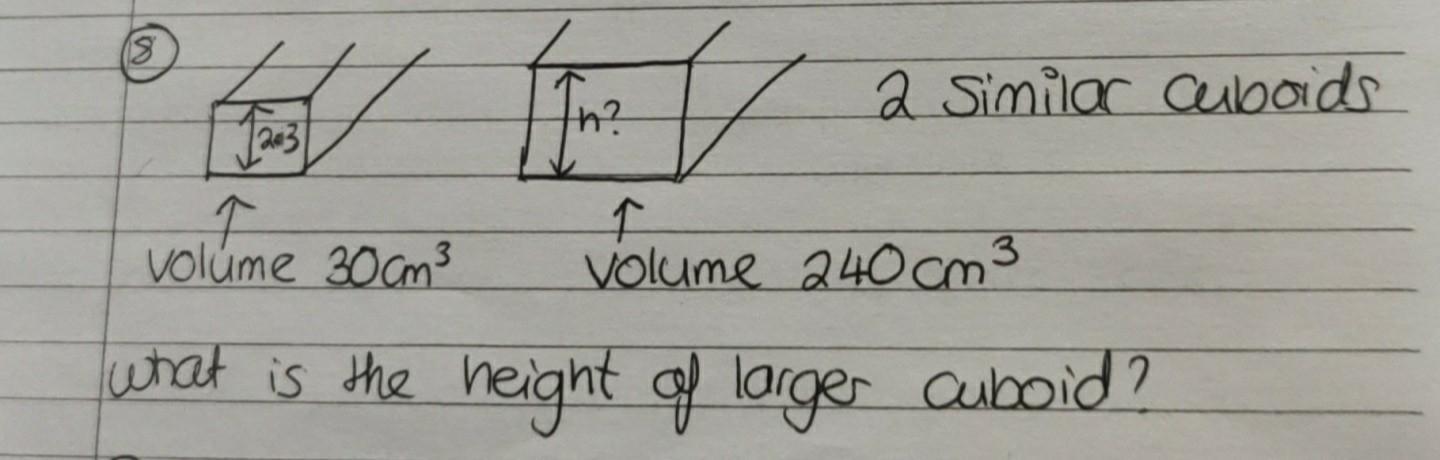 8
2.3
h?
2 Similar cuboids
volume 30cm³
volume 240cm³
what is the height of larger cuboid?